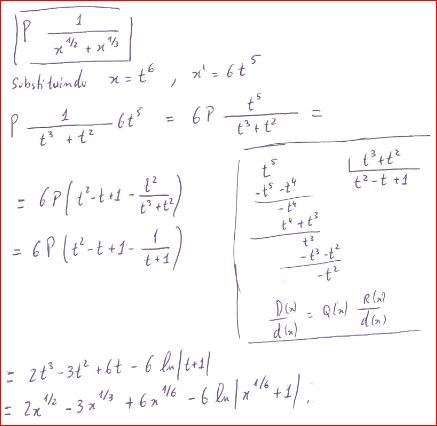 P 1/(x^(1/2) + x^(1/3))
Substituindo x = t^6 , x' = 6t^5
P 1/(t^3 + t^2) 6t^5 = 6P t^5/(t^3 + t^2) =
= 6P(t^2 - t + 1 - t^2/(t^3 + t^2))
= 6P(t^2 - t + 1 - 1/(t+1))
t^5 | t^3 + t^2
-t^5 - t^4 t^2 - t + 1
-t^4
t^4 + t^3
t^3
-t^3 - t^2
-t^2
D(x)/d(x) = Q(x) R(x)/d(x)
= 2t^3 - 3t^2 + 6t - 6 ln|t+1|
= 2x^(1/2) - 3x^(1/3) + 6x^(1/6) - 6 ln|x^(1/6) + 1| ;